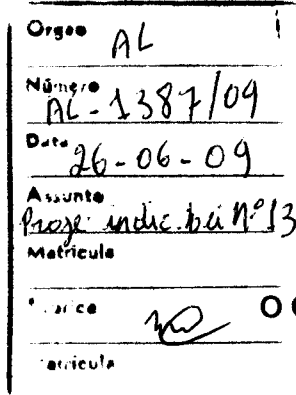 Orgao
AL
Número
AL-1387/09
Data
26-06-09
Assunto
Proje indic. Lei Nº 13
Matricula
Matricula